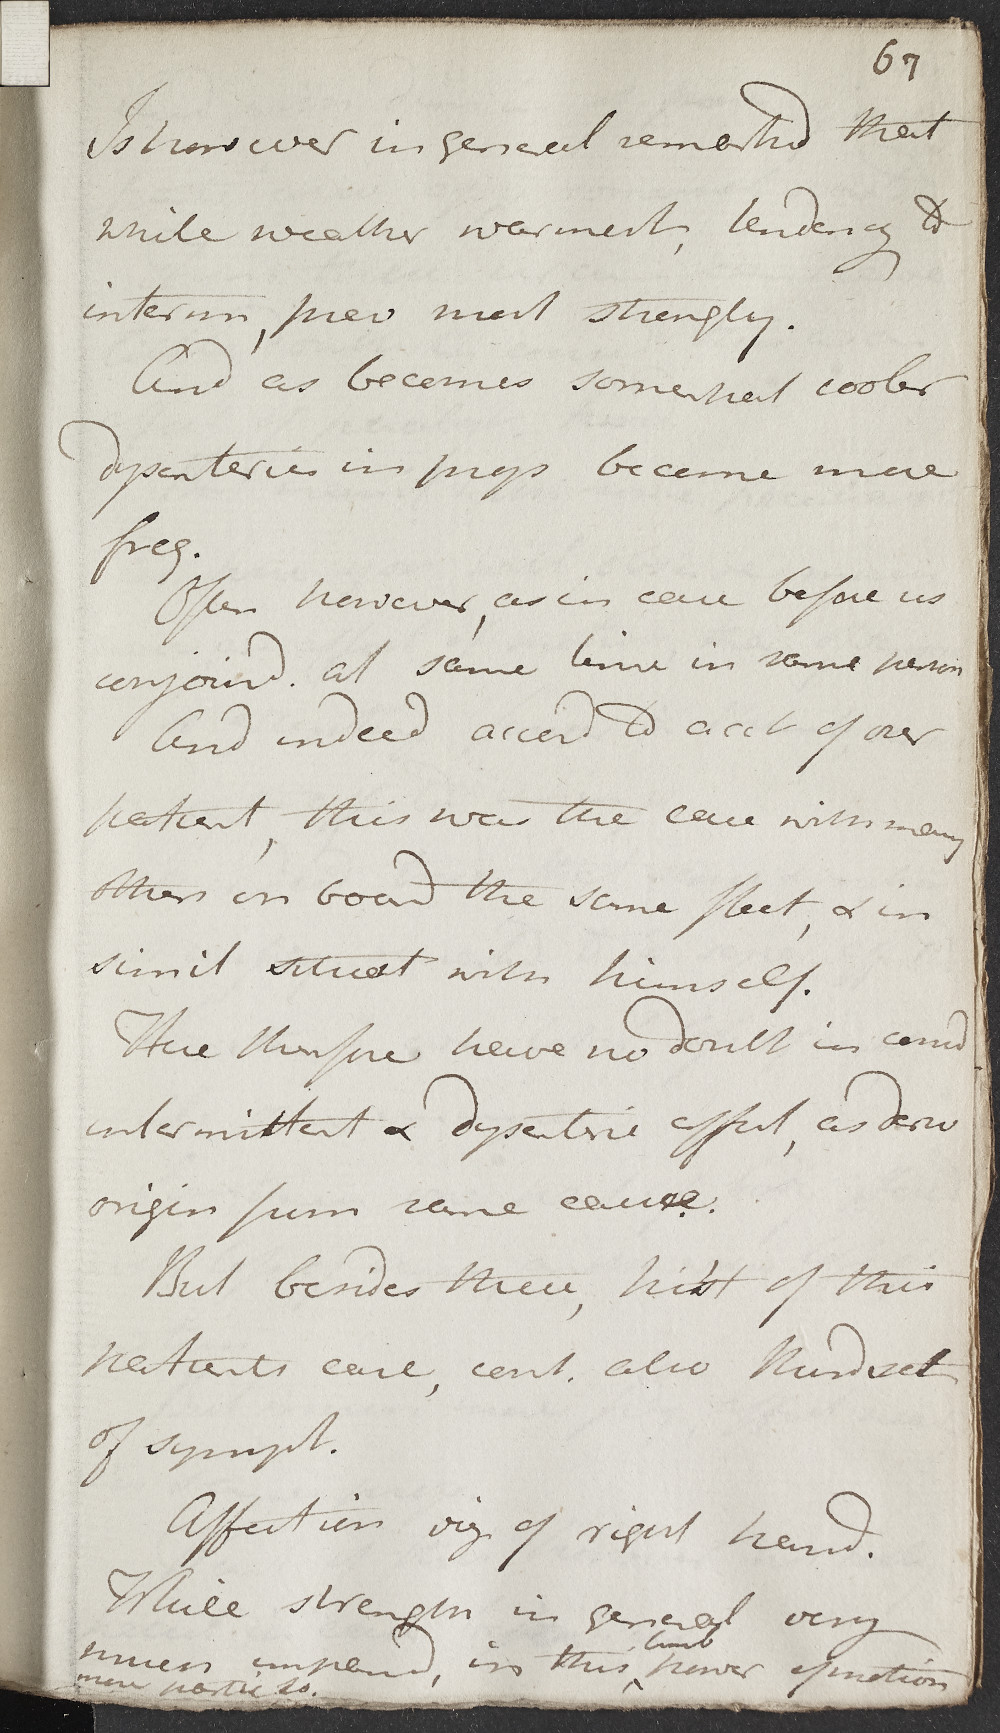 67
Is however in general remarkd that
while weather warmest, tendency to
interm, prev most strongly.
And as becomes somewhat cooler
dysenteries in progs become more
freq.
Often however, as in case before us
conjoind. at same time in same person
And indeed accord to acct of our
patient, this was the case with many
others on board the same fleet, & in
simil situat with himself.
Here therefore have no doubt in consid
intermittent & dysenteric affect, as deriv
origin from same cause.
But besides these, hist of this
patients case, cont. also third set
of sympt.
Affection viz of right hand.
While strength in general very
much impaird, in this limb power of motion
more partic so.